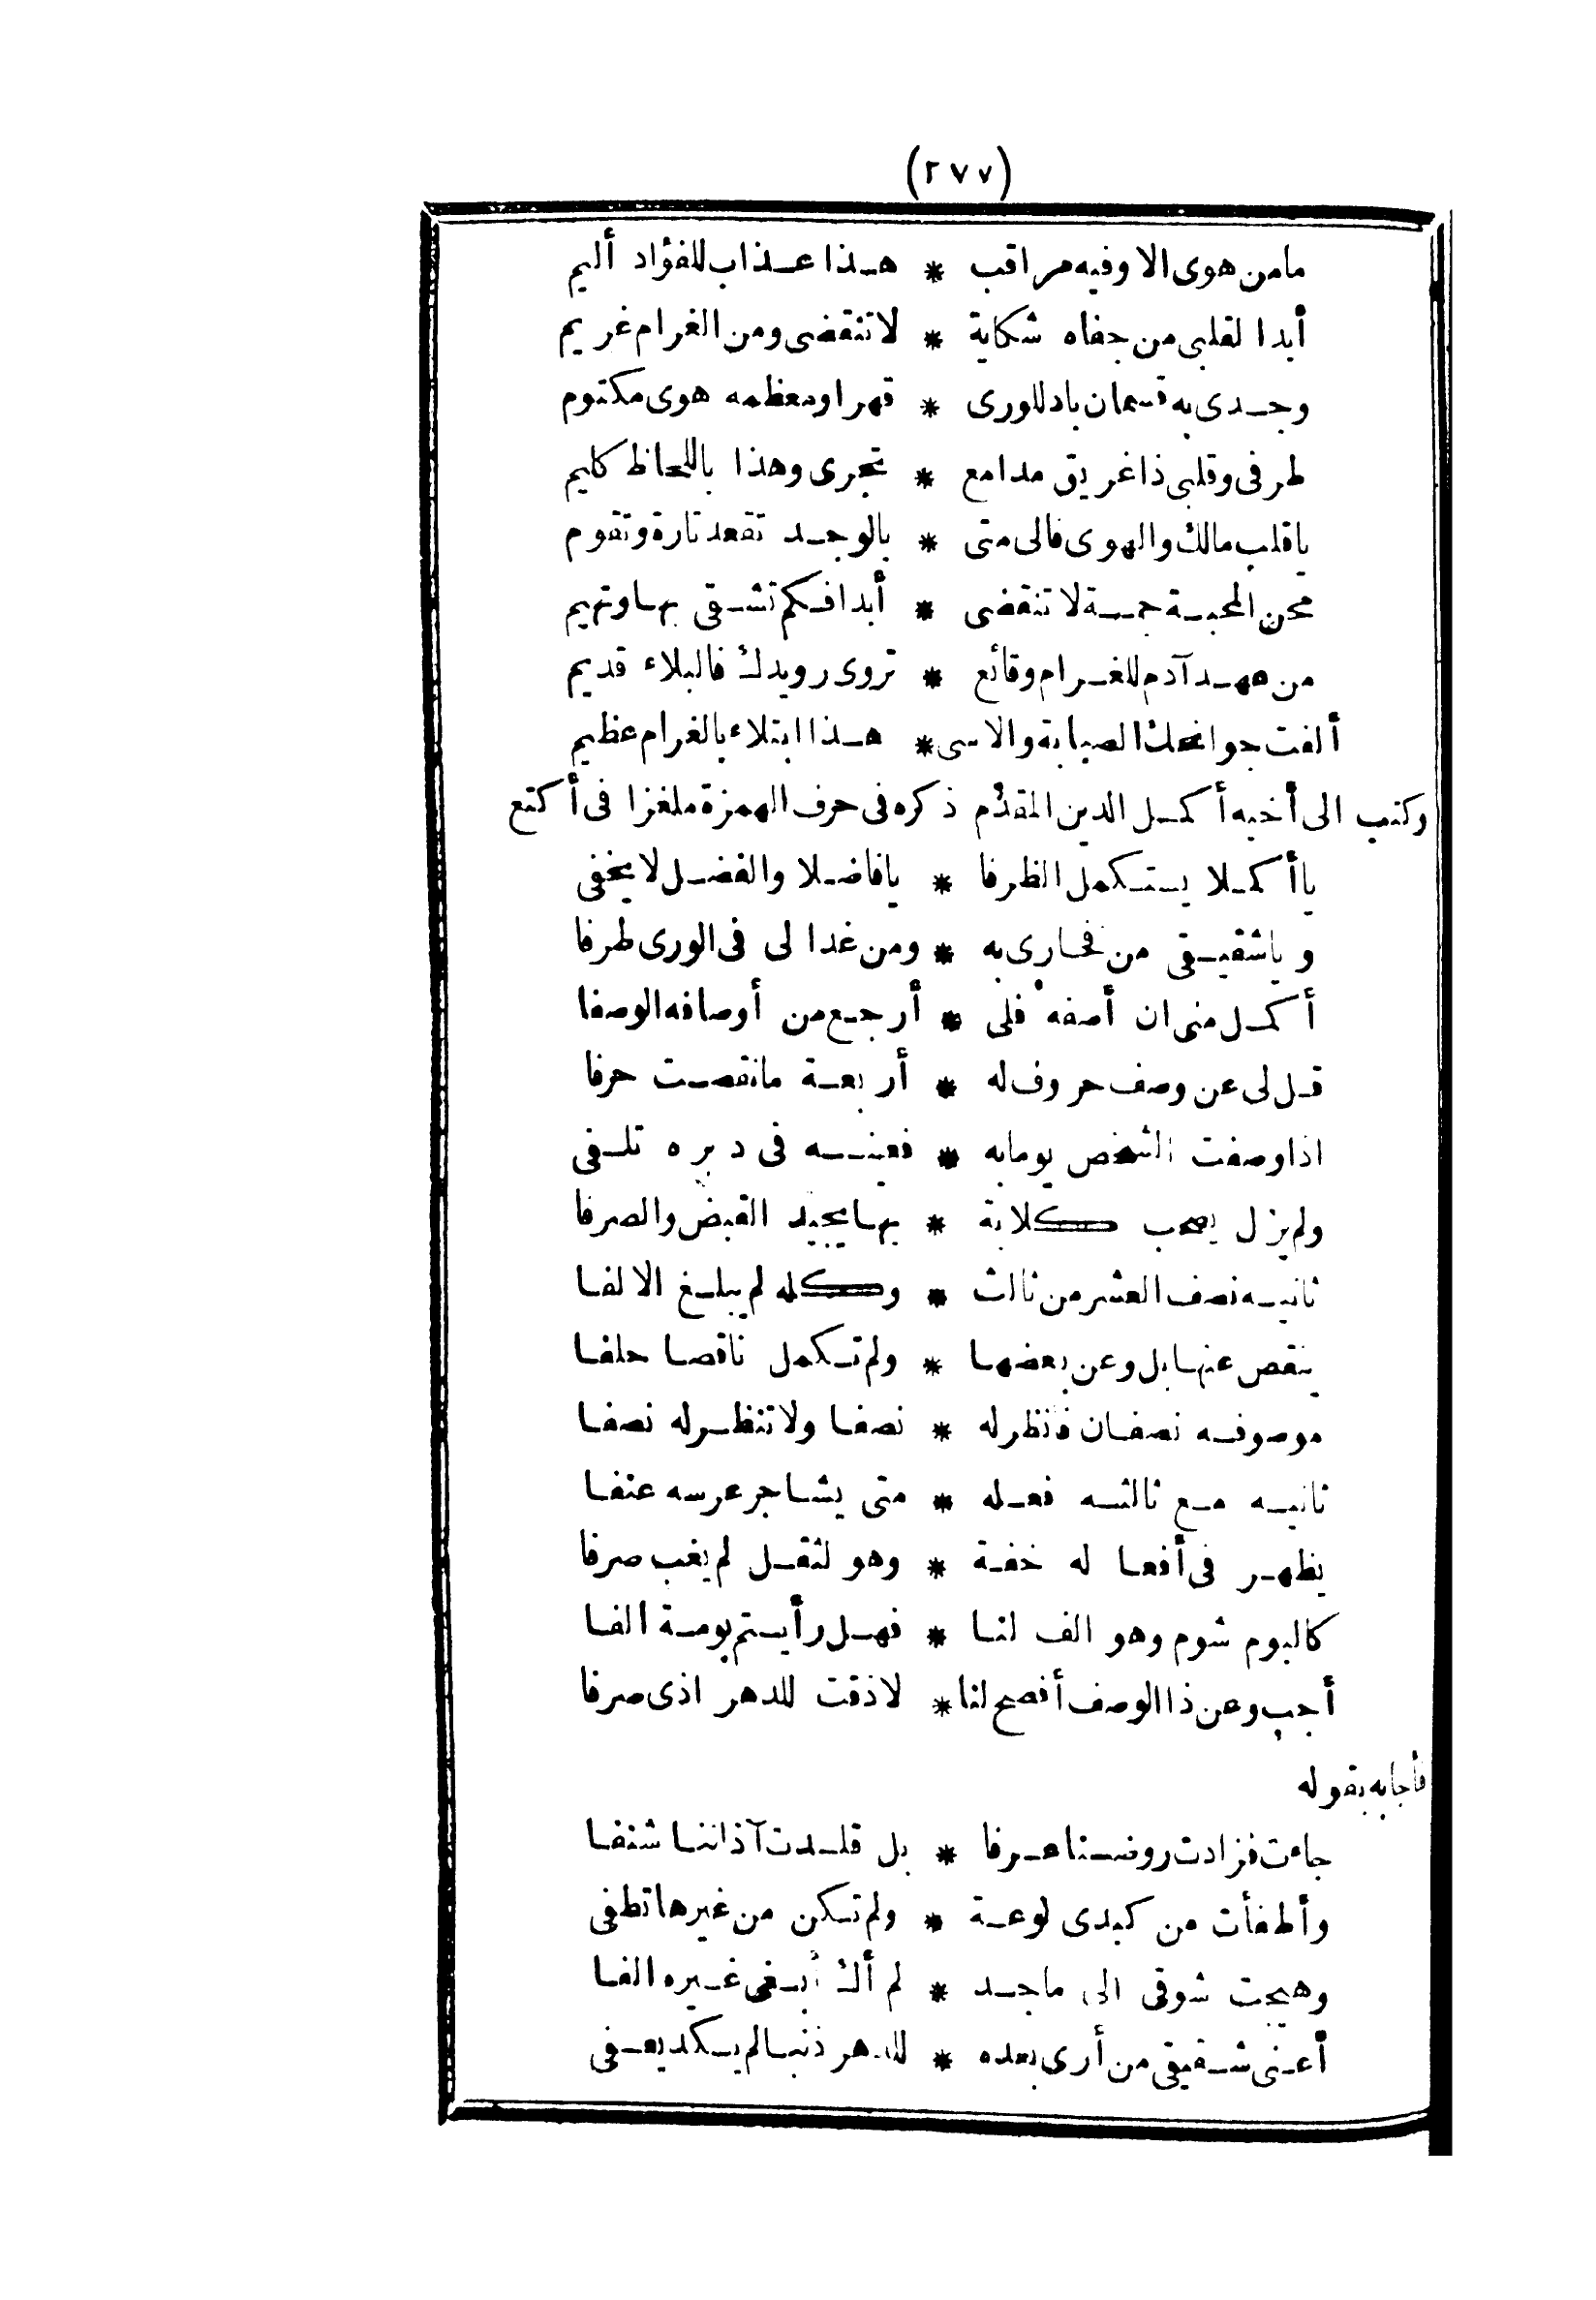 (٢٧٧)
مامن هوى الا وفيه مراقب * هذا عذاب للفؤاد أليم
أبدا لقلبى من جفاه شكاية * لا تنقضى ومن الغرام غريم
وجدى به قسمان باد للورى * قهرا ومعظمه هوى مكتوم
طرفى وقلبى ذا غريق مدامع * تجرى وهذا باللحاظ كليم
يا قلب مالك والهوى فالى متى * بالوجد تقعد تارة وتقوم
محن المحبة جمة لا تنقضى * أبدا فكم تشقى بها وتهيم
من عهد آدم للغرام وقائع * تروى رويدك فالبلاء قديم
ألفت جوانحك الصبابة والاسى * هذا ابتلاء بالغرام عظيم
وكتب الى أخيه أكمل الدين المقدّم ذكره فى حرف الهمزة ملغزا فى أكتع
يا أكملا يستكمل الظرفا * يا فاضلا والفضل لا يخفى
ويا شقيقى من فخارى به * ومن غدا لى فى الورى طرفا
أكمل منى ان أصفه فلى * أرجع من أوصافه الوصفا
قل لى عن وصف حروف له * أربعة ما نقصت حرفا
اذا وصفت الشخص يوما به * فعينه فى دبره تلفى
ولم يزل يصحب كلابة * بها يجيد القبض والصرفا
ثانيه نصف العشر من ثالث * وكله لم يبلغ الالفا
ينقص عنها بل وعن بعضها * ولم تكمل ناقصا حلفا
موصوفه نصفان فانظر له * نصفا ولا تنظر له نصفا
ثانيه مع ثالثه فعله * متى يشاجر عرسه عنفا
يظهر فى أفعاله خفة * وهو لثقل لم يغب صرفا
كالبوم شوم وهو الف لنا * فهل رأيتم بومة الفا
أجب وعن ذا الوصف أفصح لنا * لا ذقت للدهر اذى صرفا
فأجابه بقوله
جاءت فزادت روضنا عرفا * بل قلدت آذاننا شنفا
وأطفأت من كبدى لوعة * ولم تكن من غيرها تطفى
وهيجت شوقى الى ماجد * لم أك أبغى غيره الفا
أعنى شقيقى من أرى بعده * للدهر ذنبا لم يكد يعفى